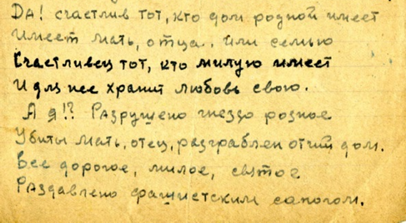 Да! счастлив тот, кто дом родной имеет
Имеет мать, отца, или семью
Счастливец тот, кто милую имеет
И для нее хранит любовь свою.
А я!? Разрушено гнездо родное
Убиты мать, отец, разграблен отчий дом.
Все дорогое, милое, святое
Раздавлено фашистским сапогом.